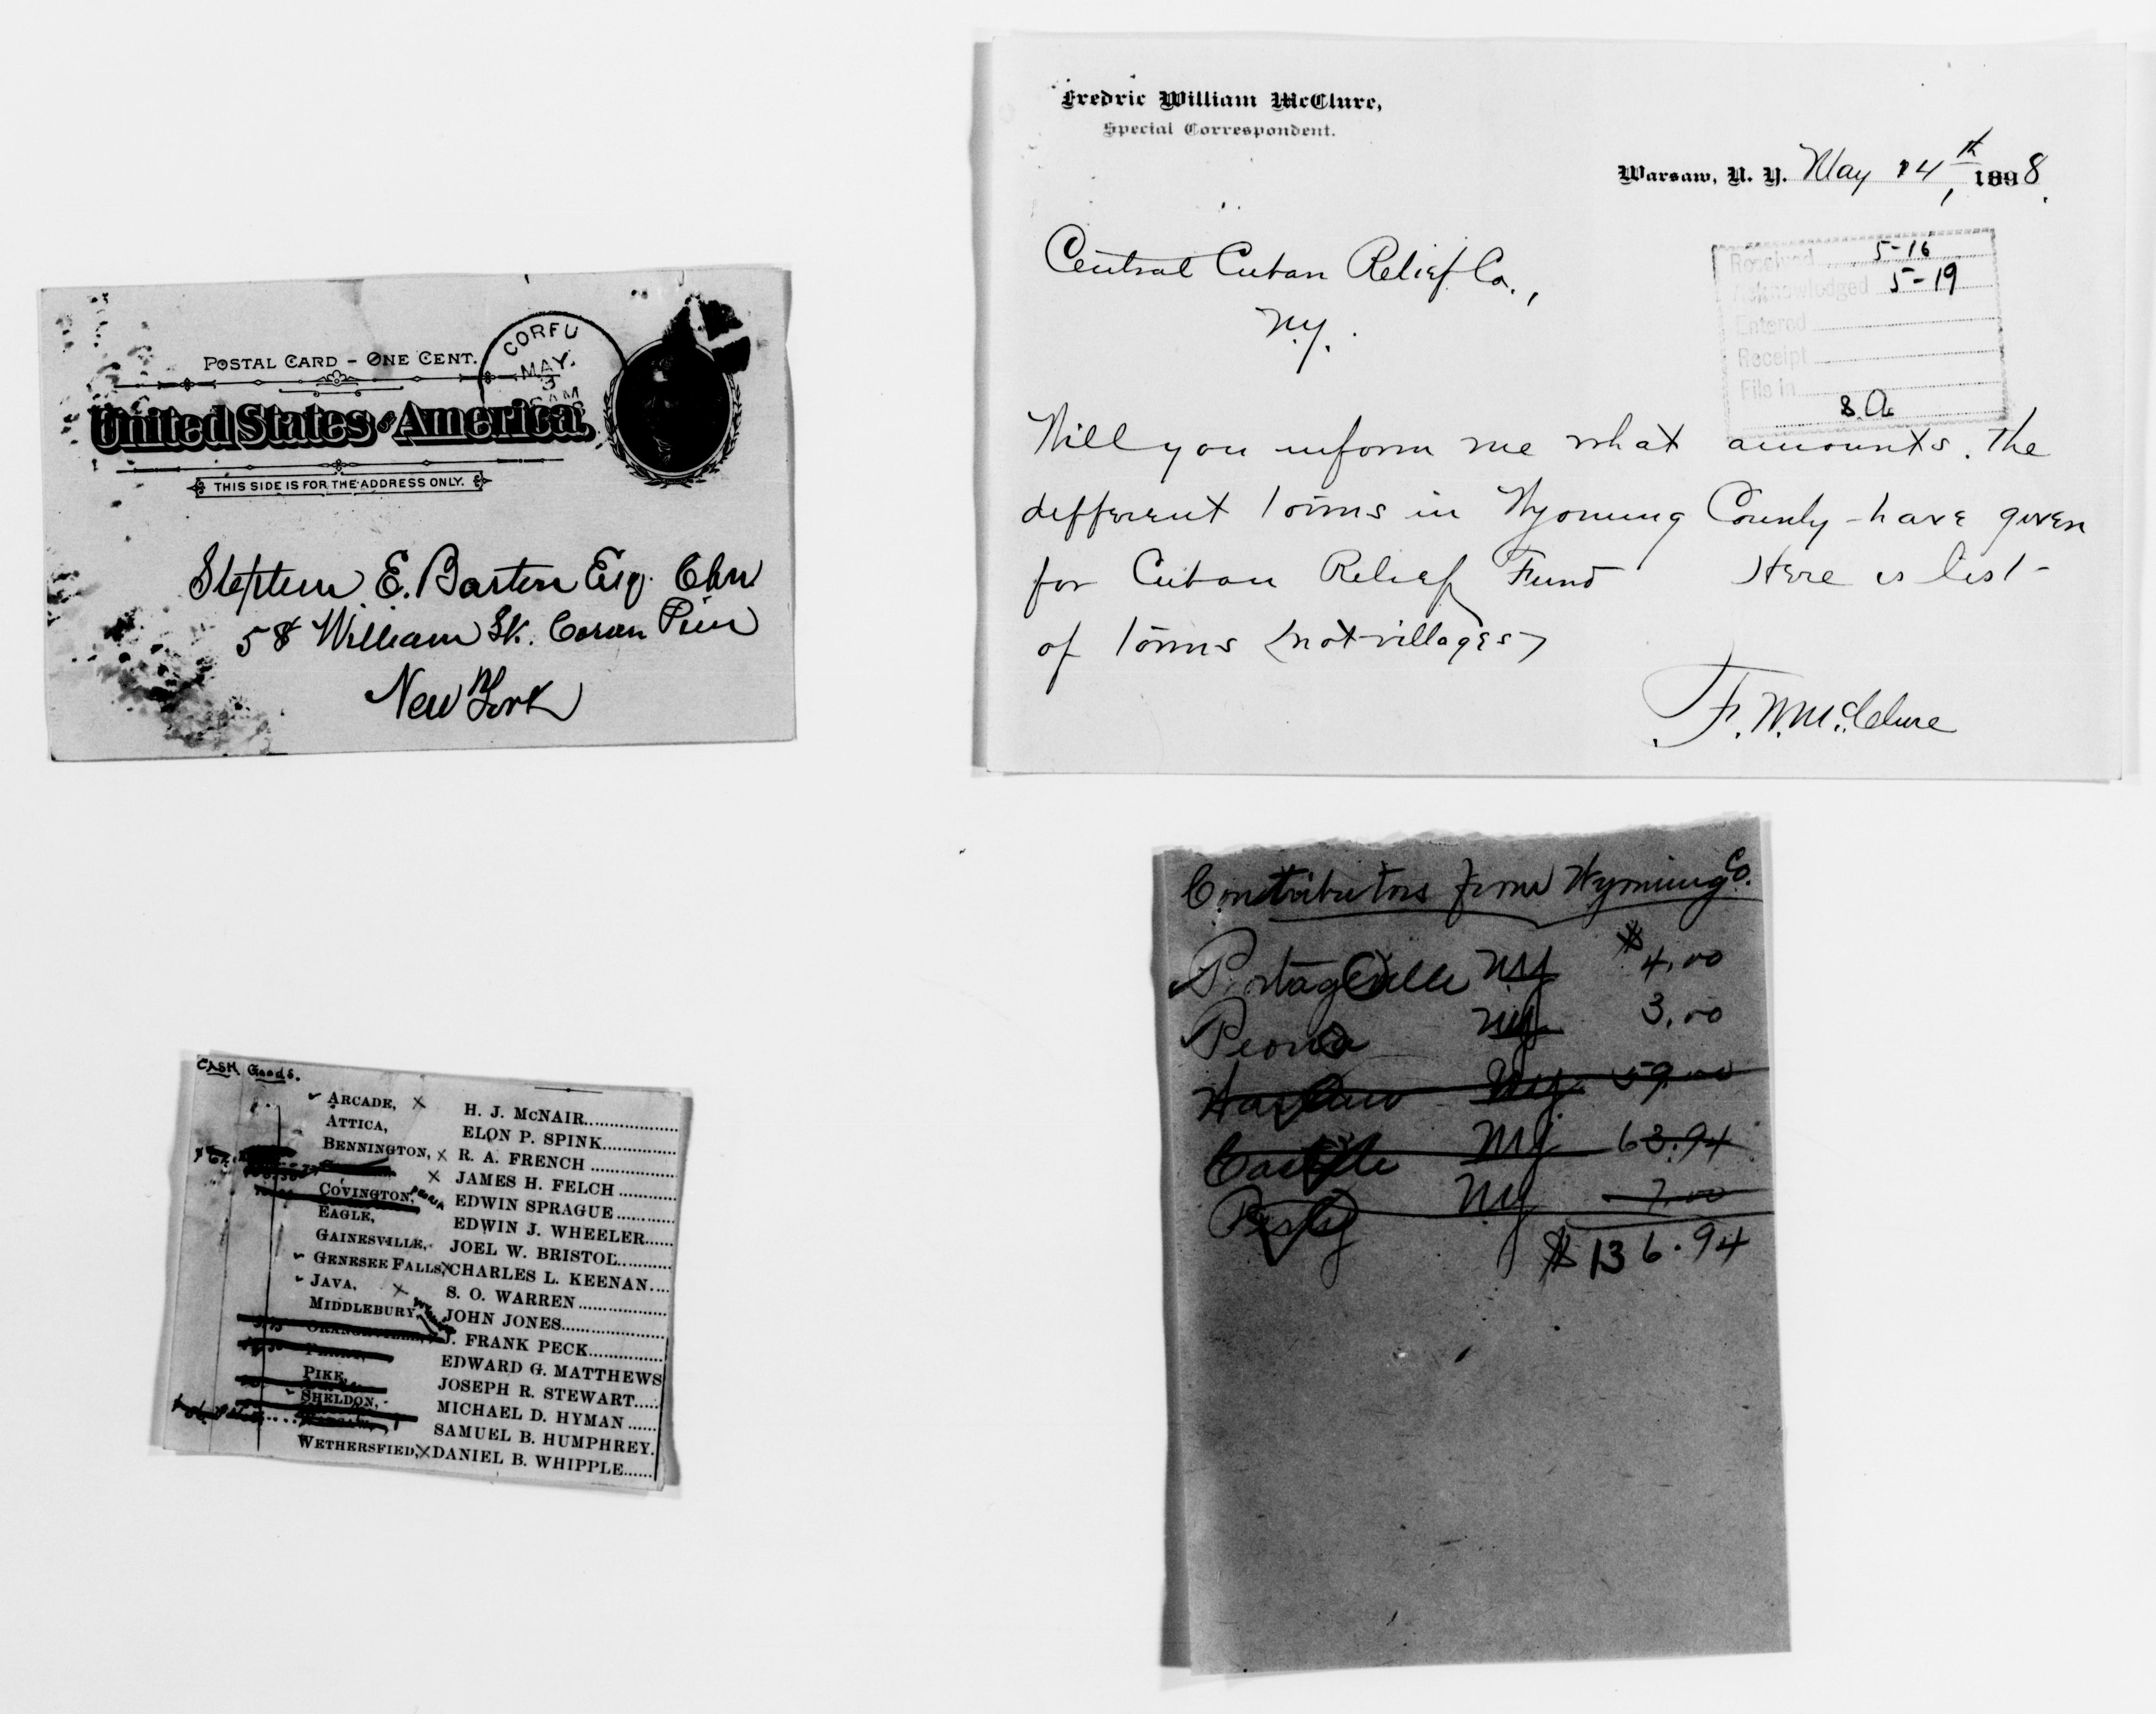 POSTAL CARD – ONE CENT.
United States of America.
THIS SIDE IS FOR THE ADDRESS ONLY.
CORFU
MAY
3
AM
Stephen E. Barton Esq. Chn
58 William St. Coran Pier
New York
Fredric William McClure,
Special Correspondent.
Warsaw, N. Y. May 14th, 1898.
Received 5-16
Acknowledged 5-19
Entered
Receipt
File in
Central Cuban Relief Co.,
N.Y.
Will you inform me what amounts, the
different towns in Wyoming County - have given
for Cuban Relief Fund Here is list -
of towns (not villages)
F. W. McClure
CASH Goods.
ARCADE, X H. J. McNAIR
ATTICA, ELON P. SPINK
BENNINGTON, X R. A. FRENCH
X JAMES H. FELCH
COVINGTON, EDWIN SPRAGUE
EAGLE, EDWIN J. WHEELER
GAINESVILLE, JOEL W. BRISTOL
GENESEE FALLS, X CHARLES L. KEENAN
JAVA, X S. O. WARREN
MIDDLEBURY JOHN JONES
ORANGEVILLE, J. FRANK PECK
PERRY, EDWARD G. MATTHEWS
PIKE, JOSEPH R. STEWART
SHELDON, MICHAEL D. HYMAN
SAMUEL B. HUMPHREY.
WETHERSFIED, X DANIEL B. WHIPPLE
Contributors from Wyoming Co.
Portageville NY $4.00
Peoria NY 3.00
Warsaw NY 59.00
Castile NY 63.94
Perry NY 7.00
$136.94